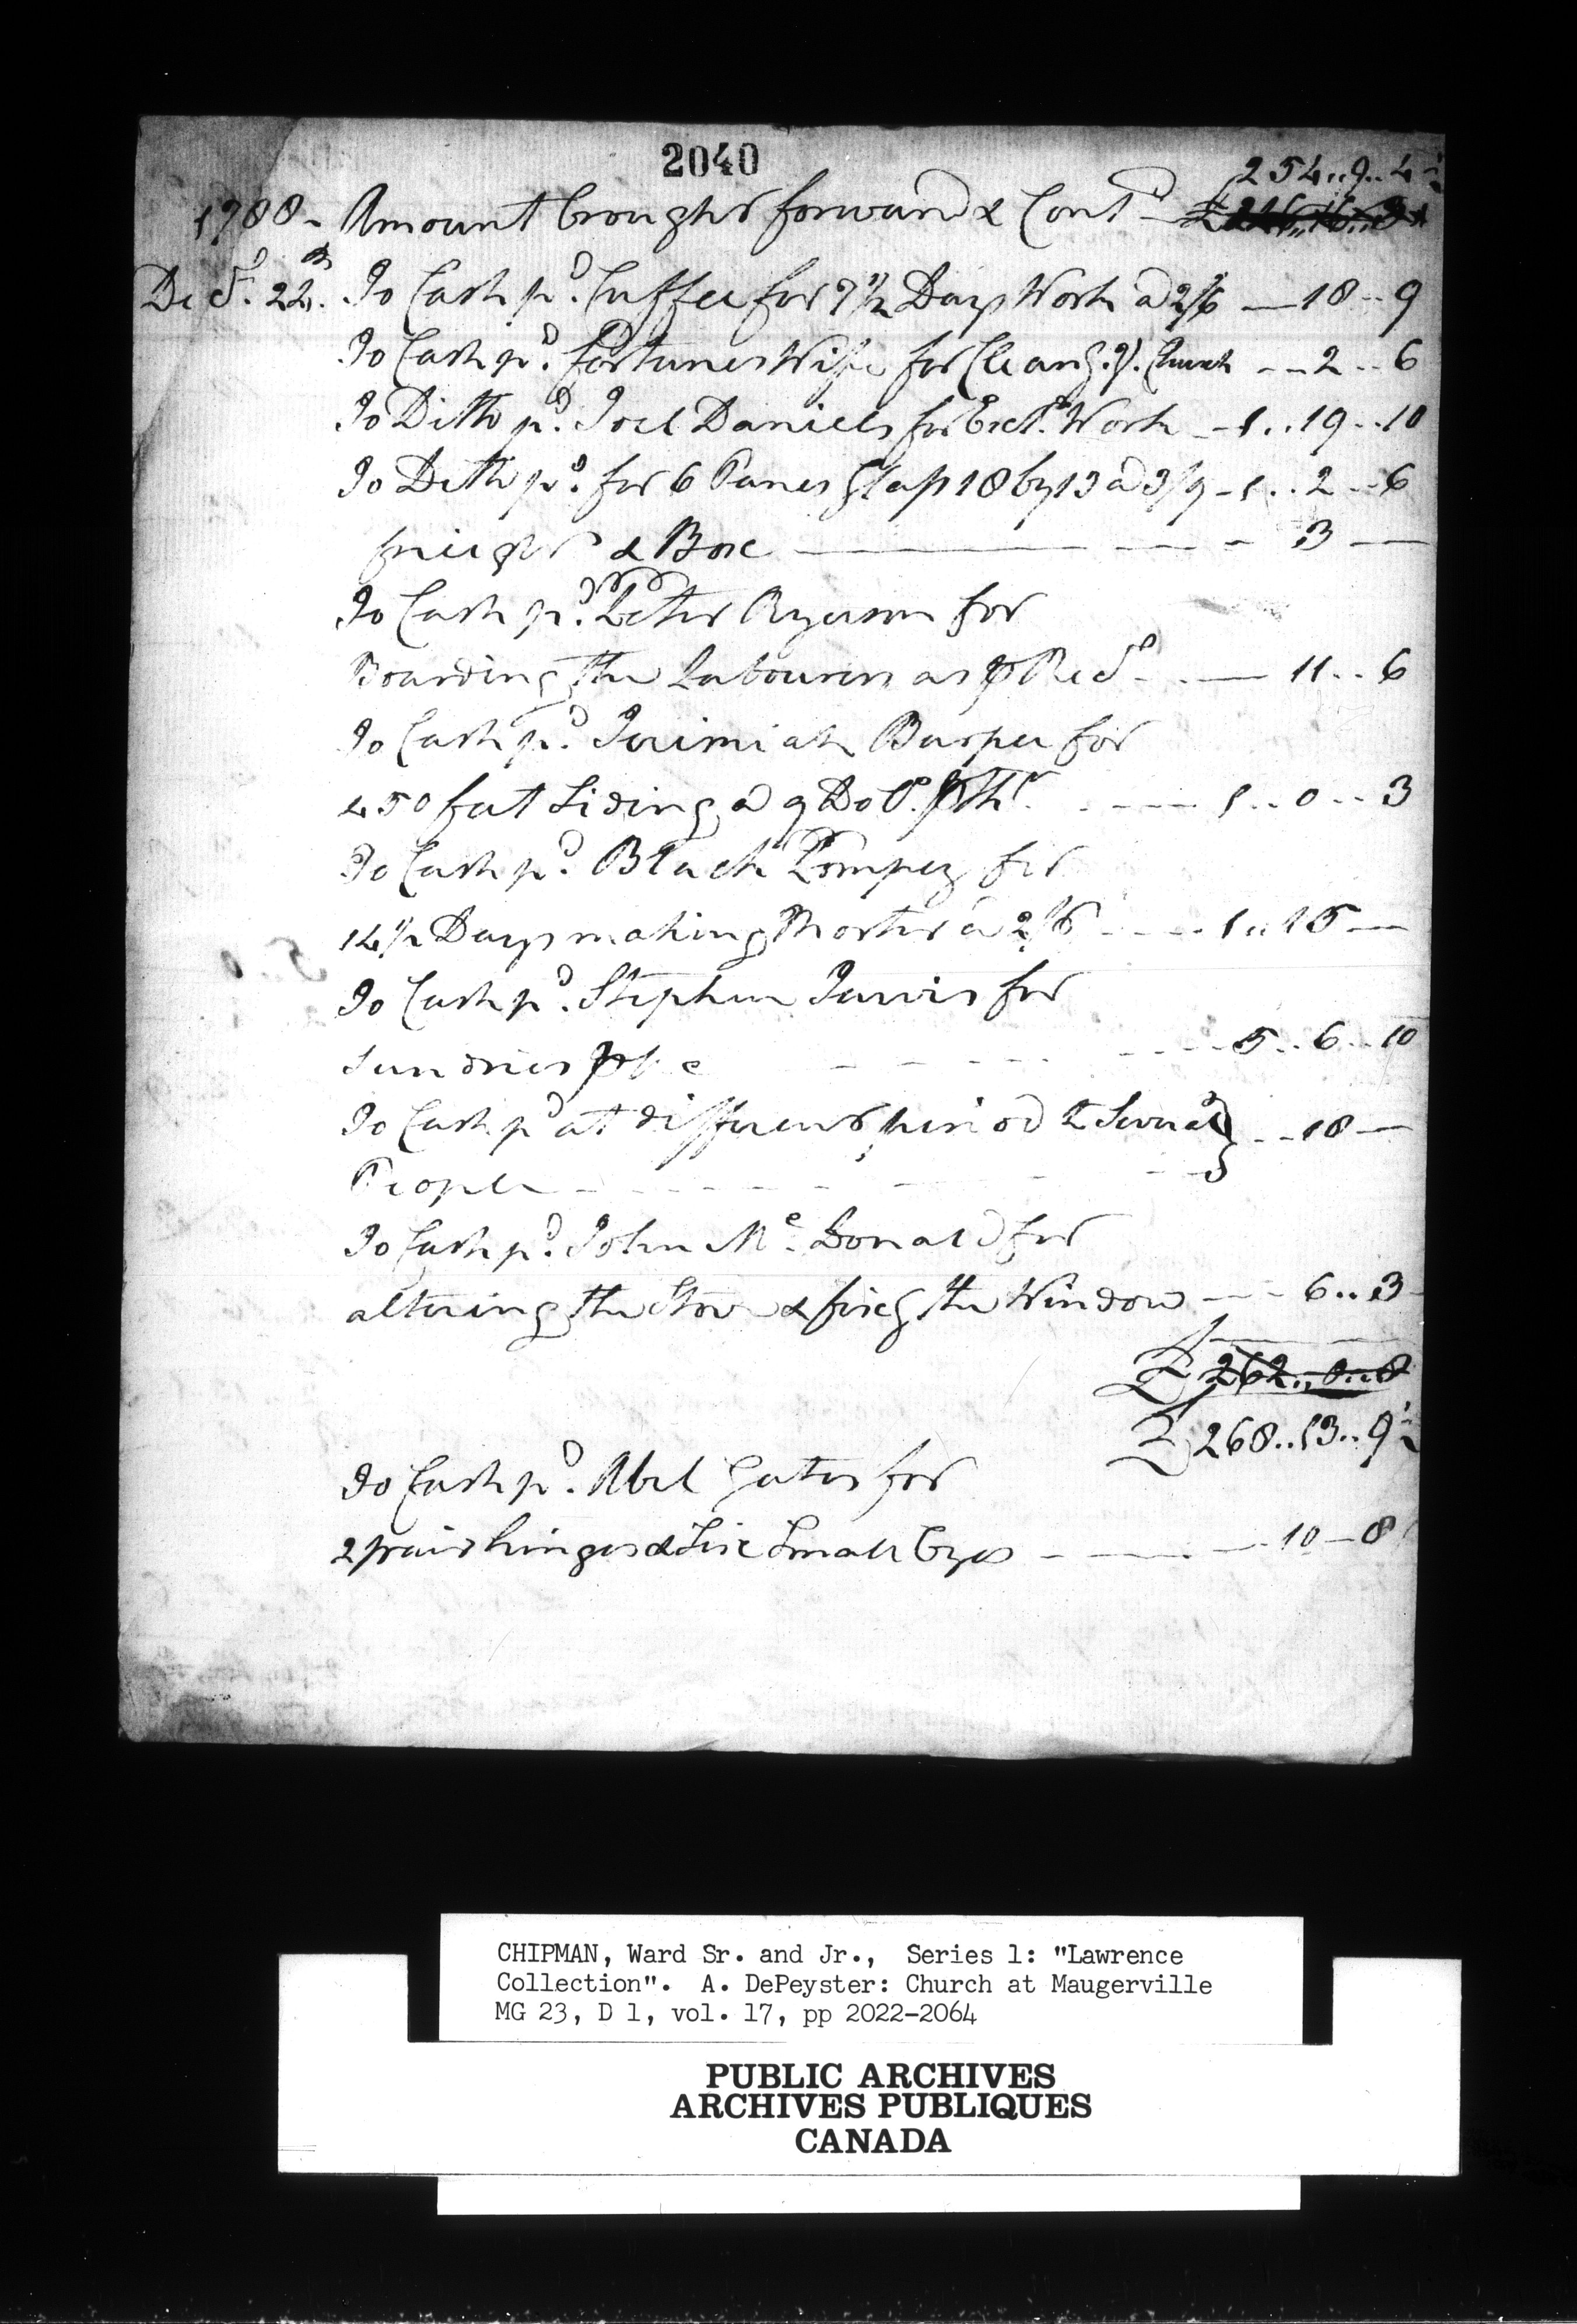 2040
254..9..4½
1788 - Amount brought forward & Cont.d £
Dec.r 22.d To Cash p.d Cuffee for 7 1/2 Days Work a 2/6 — 18..9
To Cash p.d Fortunes Wife for Clean.g y.e Church - - 2 .. 6
To Ditto p.d Joel Daniels for Work - 1..19..10
To Ditto p.d for 6 Panes Glass 18 by 13 a 3/9 - 1..2..6
freight & Box — — - 3 —
To Cash p.d Peter Ryerson for
Boarding the Labourers as p Rec.t — 11..6
To Cash p.d Jerimiah Burpee for
450 feet Siding a 9 Dol.s p Th.d - - - 1..0..3
To Cash p.d Black Pompey for
14 1/2 Days making Morter a 2/6 - - - 1..15 —
To Cash p.d Stephen Jarvis for
Sundries p - - - - 5..6..10
To Cash p.d at different period to Several } - - 18 —
People - - - - -
To Cash p.d John M.c Donald for
altering the Stove & fixg the Window - - - 6..3
£ 262..0..8
£ 268..13..9½
To Cash p.d Abel Gates for
2 pair hinges & Six Small Eyes - — - 10 - 8
CHIPMAN, Ward Sr. and Jr., Series 1: "Lawrence
Collection". A. DePeyster: Church at Maugerville
MG 23, D 1, vol. 17, pp 2022-2064
PUBLIC ARCHIVES
ARCHIVES PUBLIQUES
CANADA